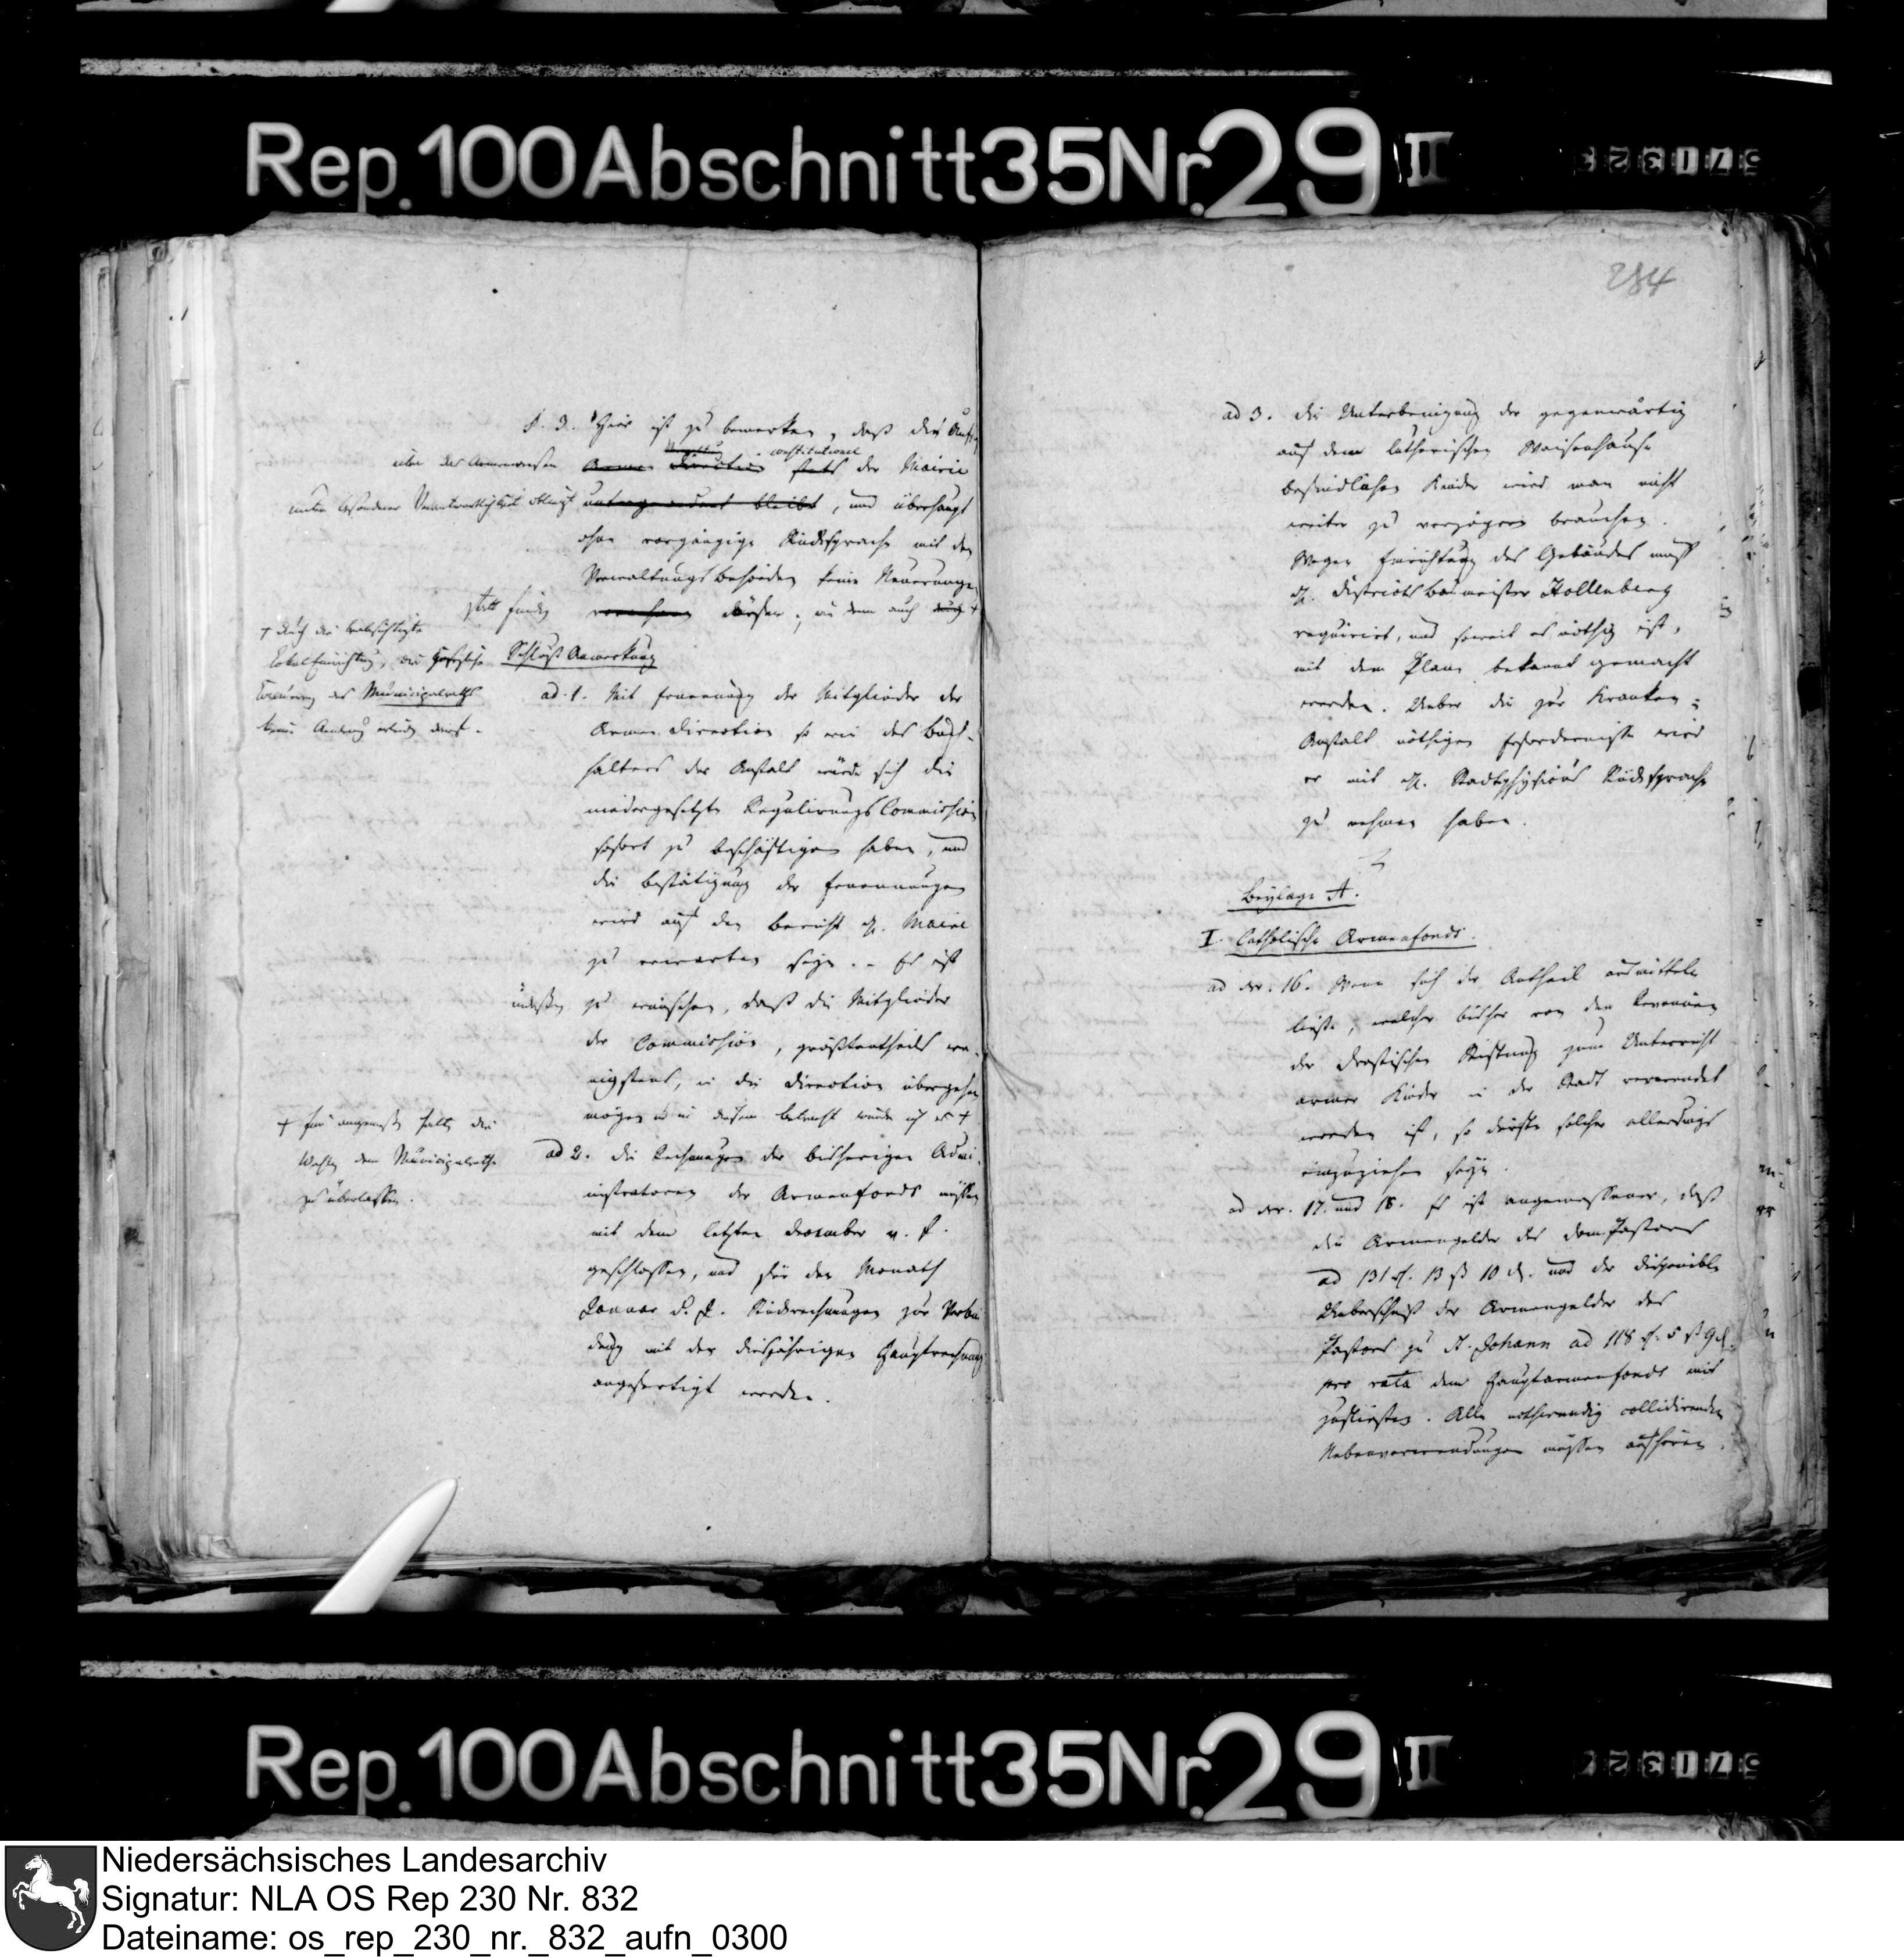 Rep. 100 Abschnitt 35 Nr. 29 II
571323
284
§. 3. Hier ist zu bemerken, daß die Aufs.
über das Armenwesen Armen direction stets der Mairie
constitutionel
unter besonderer Verantwortlichkeit obliegt untergeordnet bleibt, und überhaupt
ohne vorgängige Rücksprache mit den
Verwaltungsbehörden keine Neuerungen
statt finden vornehmen dürfen; wie denn auch durch +
+ durch die beabsichtigte
Lokaleinrichtung, die
des Municipalraths
keine Aendrung erleiden darf.
Schluß Anmerkung
ad. 1. Mit Ernennung der Mitglieder der
Armen direction so wie des Buch-
halters der Anstalt würde sich die
niedergesetzte Regulirungs Commission
sofort zu beschäftigen haben, und
die Bestätigung der Ernennungen
wird auf den Bericht H. Maire
zu erwarten seyn. – Es ist
indeßen zu wünschen, daß die Mitglieder
der Commission, größtentheils we-
nigstens, in die Direction übergehen
mögen in diesem Betracht würde ich es +
+ für angemessen halten die
Wahlen dem Municipalrathe
zu überlassen.
ad 2. Die Rechnungen der bisherigen Admi-
nistratoren der Armenfonds müssen
mit dem letzten December v. J.
geschlossen, und für den Monath
Januar d. J. Rückrechnungen zur Verbin
dung mit der diesjährigen Hauptrechnung
angefertigt werden.
ad 3. Die Unterbringung der gegenwärtig
auf dem lutherischen Waisenhause
befindlichen Kinder wird man nicht
weiter zu verzögern brauchen.
Wegen Einrichtung des Gebäudes muß
H. Districts Baumeister Hollenberg
requirirt, und soweit es nöthig ist,
mit dem Plane bekannt gemacht
werden. Ueber die zur Kranken-
Anstalt nöthigen Erfordernisse wird
er mit H. Stadtphysicus Rücksprache
zu nehmen haben.
Beylage A.
I. Catholische Armenfonds.
ad nr. 16. Wenn sich der Antheil ausmitteln
ließe, welcher bisher von den Revenüen
der Stiftung zum Unterricht
armer Kinder in der Stadt verwendet
worden ist, so dürfte solcher allerdings
einzuziehen seyn.
ad nr. 17. und 18. Es ist angemessener, daß
die Armengelder des Dom Pastors
ad 131 rt. 13 ß 10 d. und der disponible
Ueberschuß der Armengelder des
Pastors zu St. Johann ad 118 rt. 5 ß 9 d.
pro rata dem Hauptarmenfonds mit
zufließen. Alle nothwendig collidirenden
Nebenverwendungen müssen aufhören.
Rep. 100 Abschnitt 35 Nr. 29 II
Niedersächsisches Landesarchiv
Signatur: NLA OS Rep 230 Nr. 832
Dateiname: os_rep_230_nr._832_aufn_0300